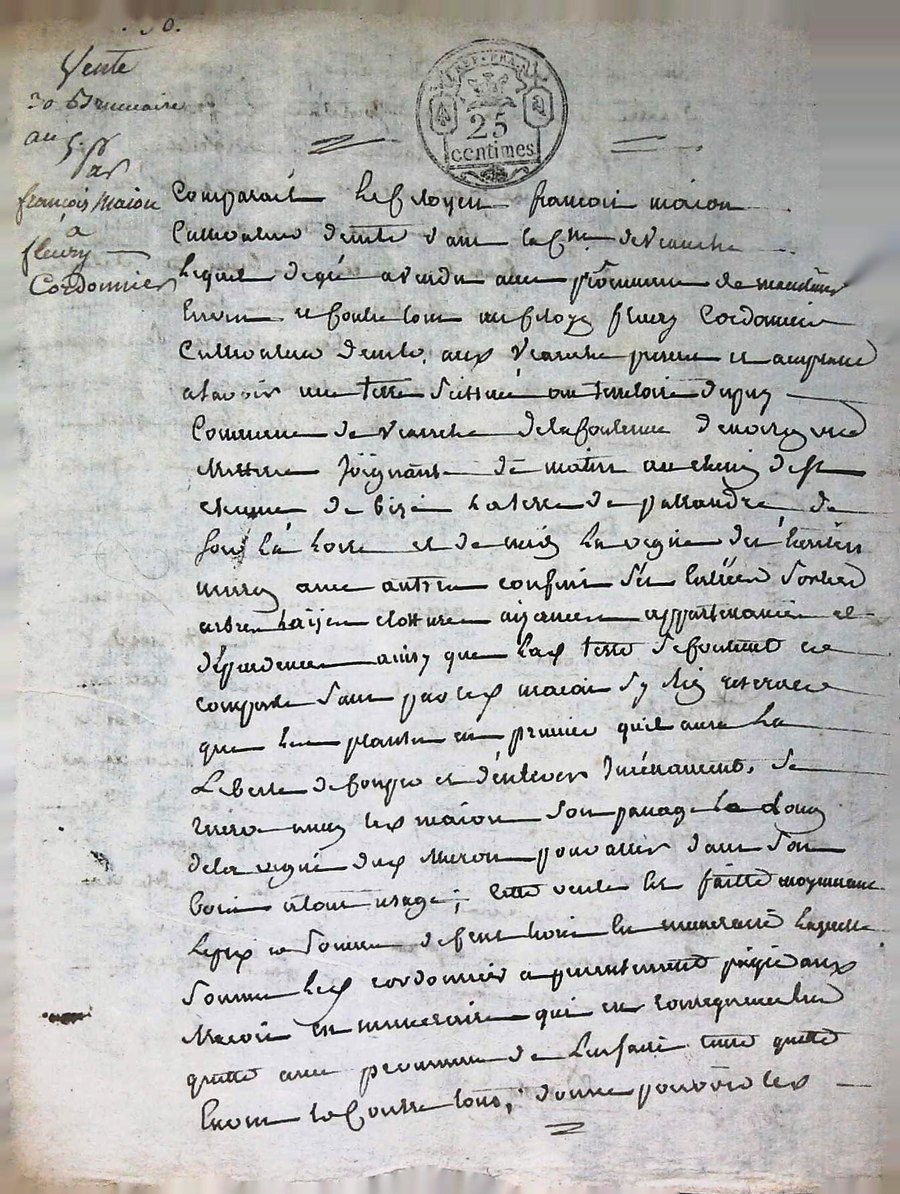 Vente
30 Brumaire
au 5
Par
françois Maion
à
fleury
Cordonnier
REP. FRA.
25
centimes
Comparait Le Citoyen francois maion
Cultivateur demte dans la Cne de veauche
Lequel de gré a vendu avec promesse de maintenir
Envers et Contre tous au Citoye fleury Cordonnier
Cultivateur demte aux veauche present et acceptant
a savoir une terre scittuée au territoire du puy
Commune de veauche de la Contenue denviron
Mettere joignant de matin au chemin de St
de bize La terre de
soir La Loire et de midy La vigne des heritiers
avec autres confins ses Entrées Sorties
arbres hayes clotture aisances appartenances et
dependences ainsy que Lad terre se Contient et
comporte sans par led maion sy rien reserver
que Les plantes en premier quil aura La
Liberte de Coupper et d'enlever se
reserve aussy led maion son passage Le Long
de la vigne dud pour aller dans son
bois a tout usage; Cette vente est faitte moyennant
Le prix et Somme de Cent livres En numeraire Laquelle
Somme Led cordonnier a presentement payé aud
Maion en numeraire qui en consequence Len
quitte avec promesse de Len faire tenir quitte
Envers et Contre tous, donne pouvoir led